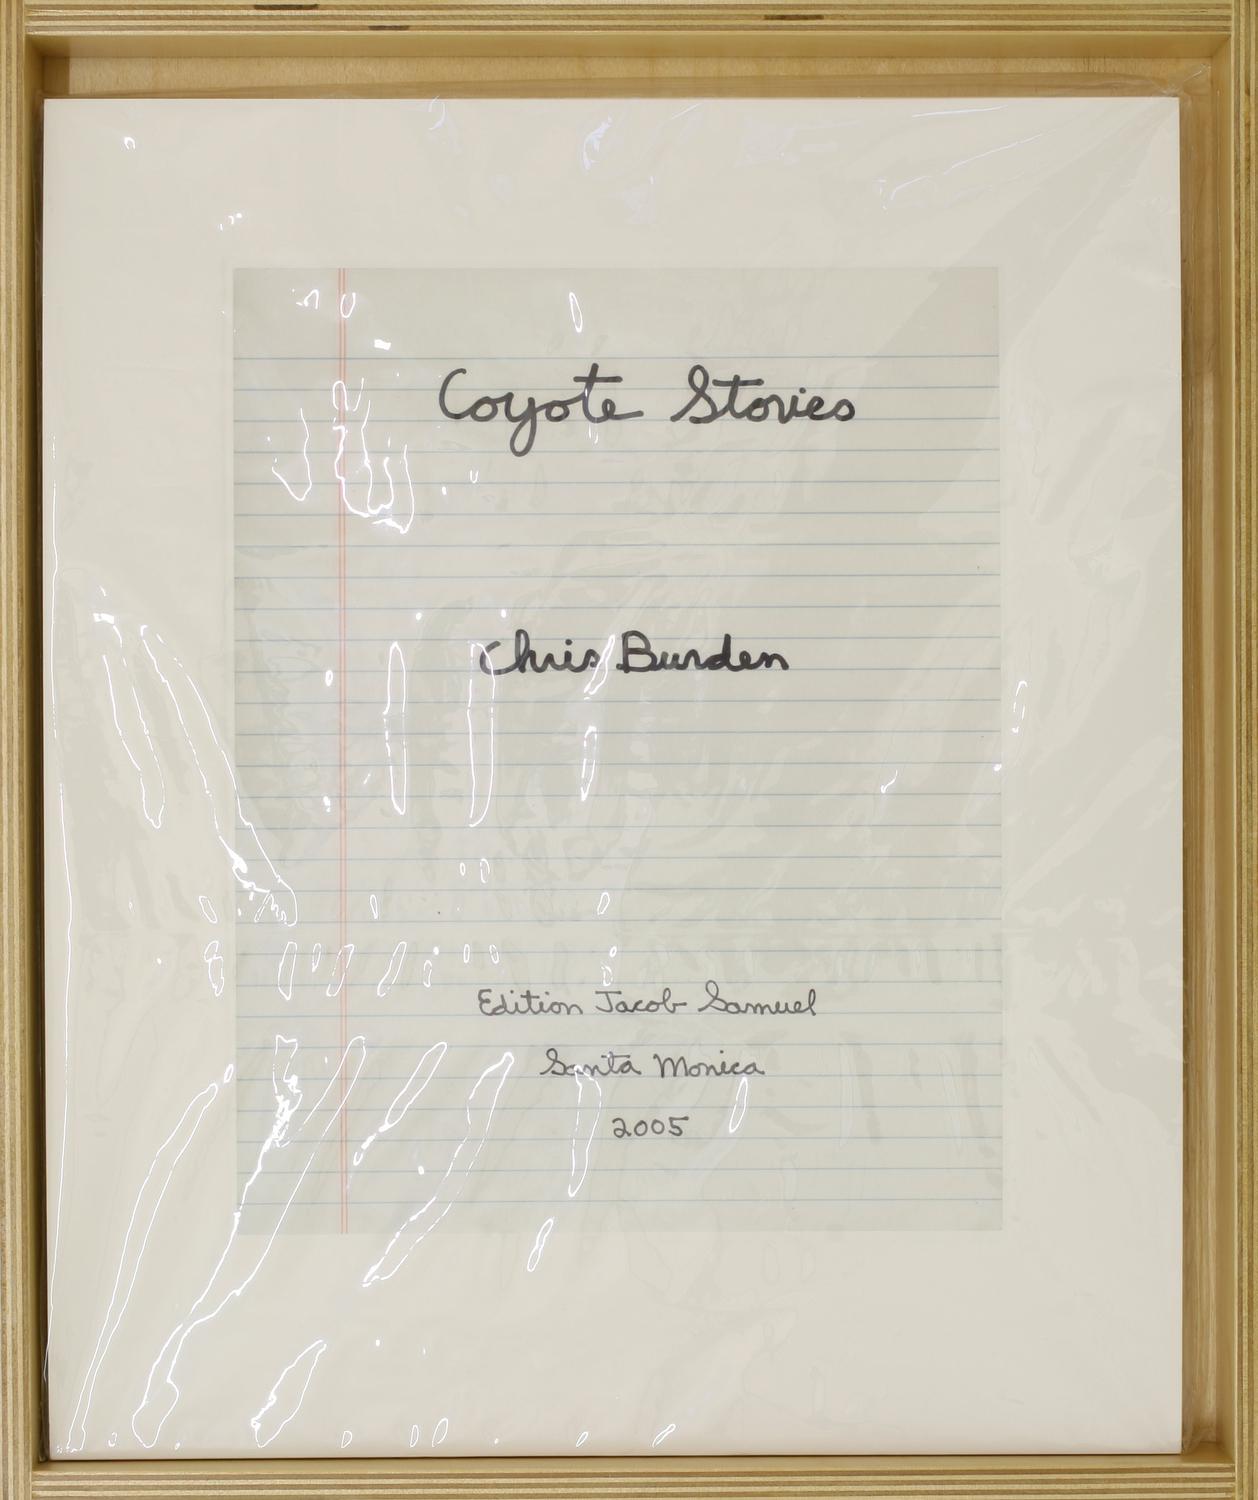 Coyote Stories
Chris Burden
Edition Jacob Samuel
Santa Monica
2005